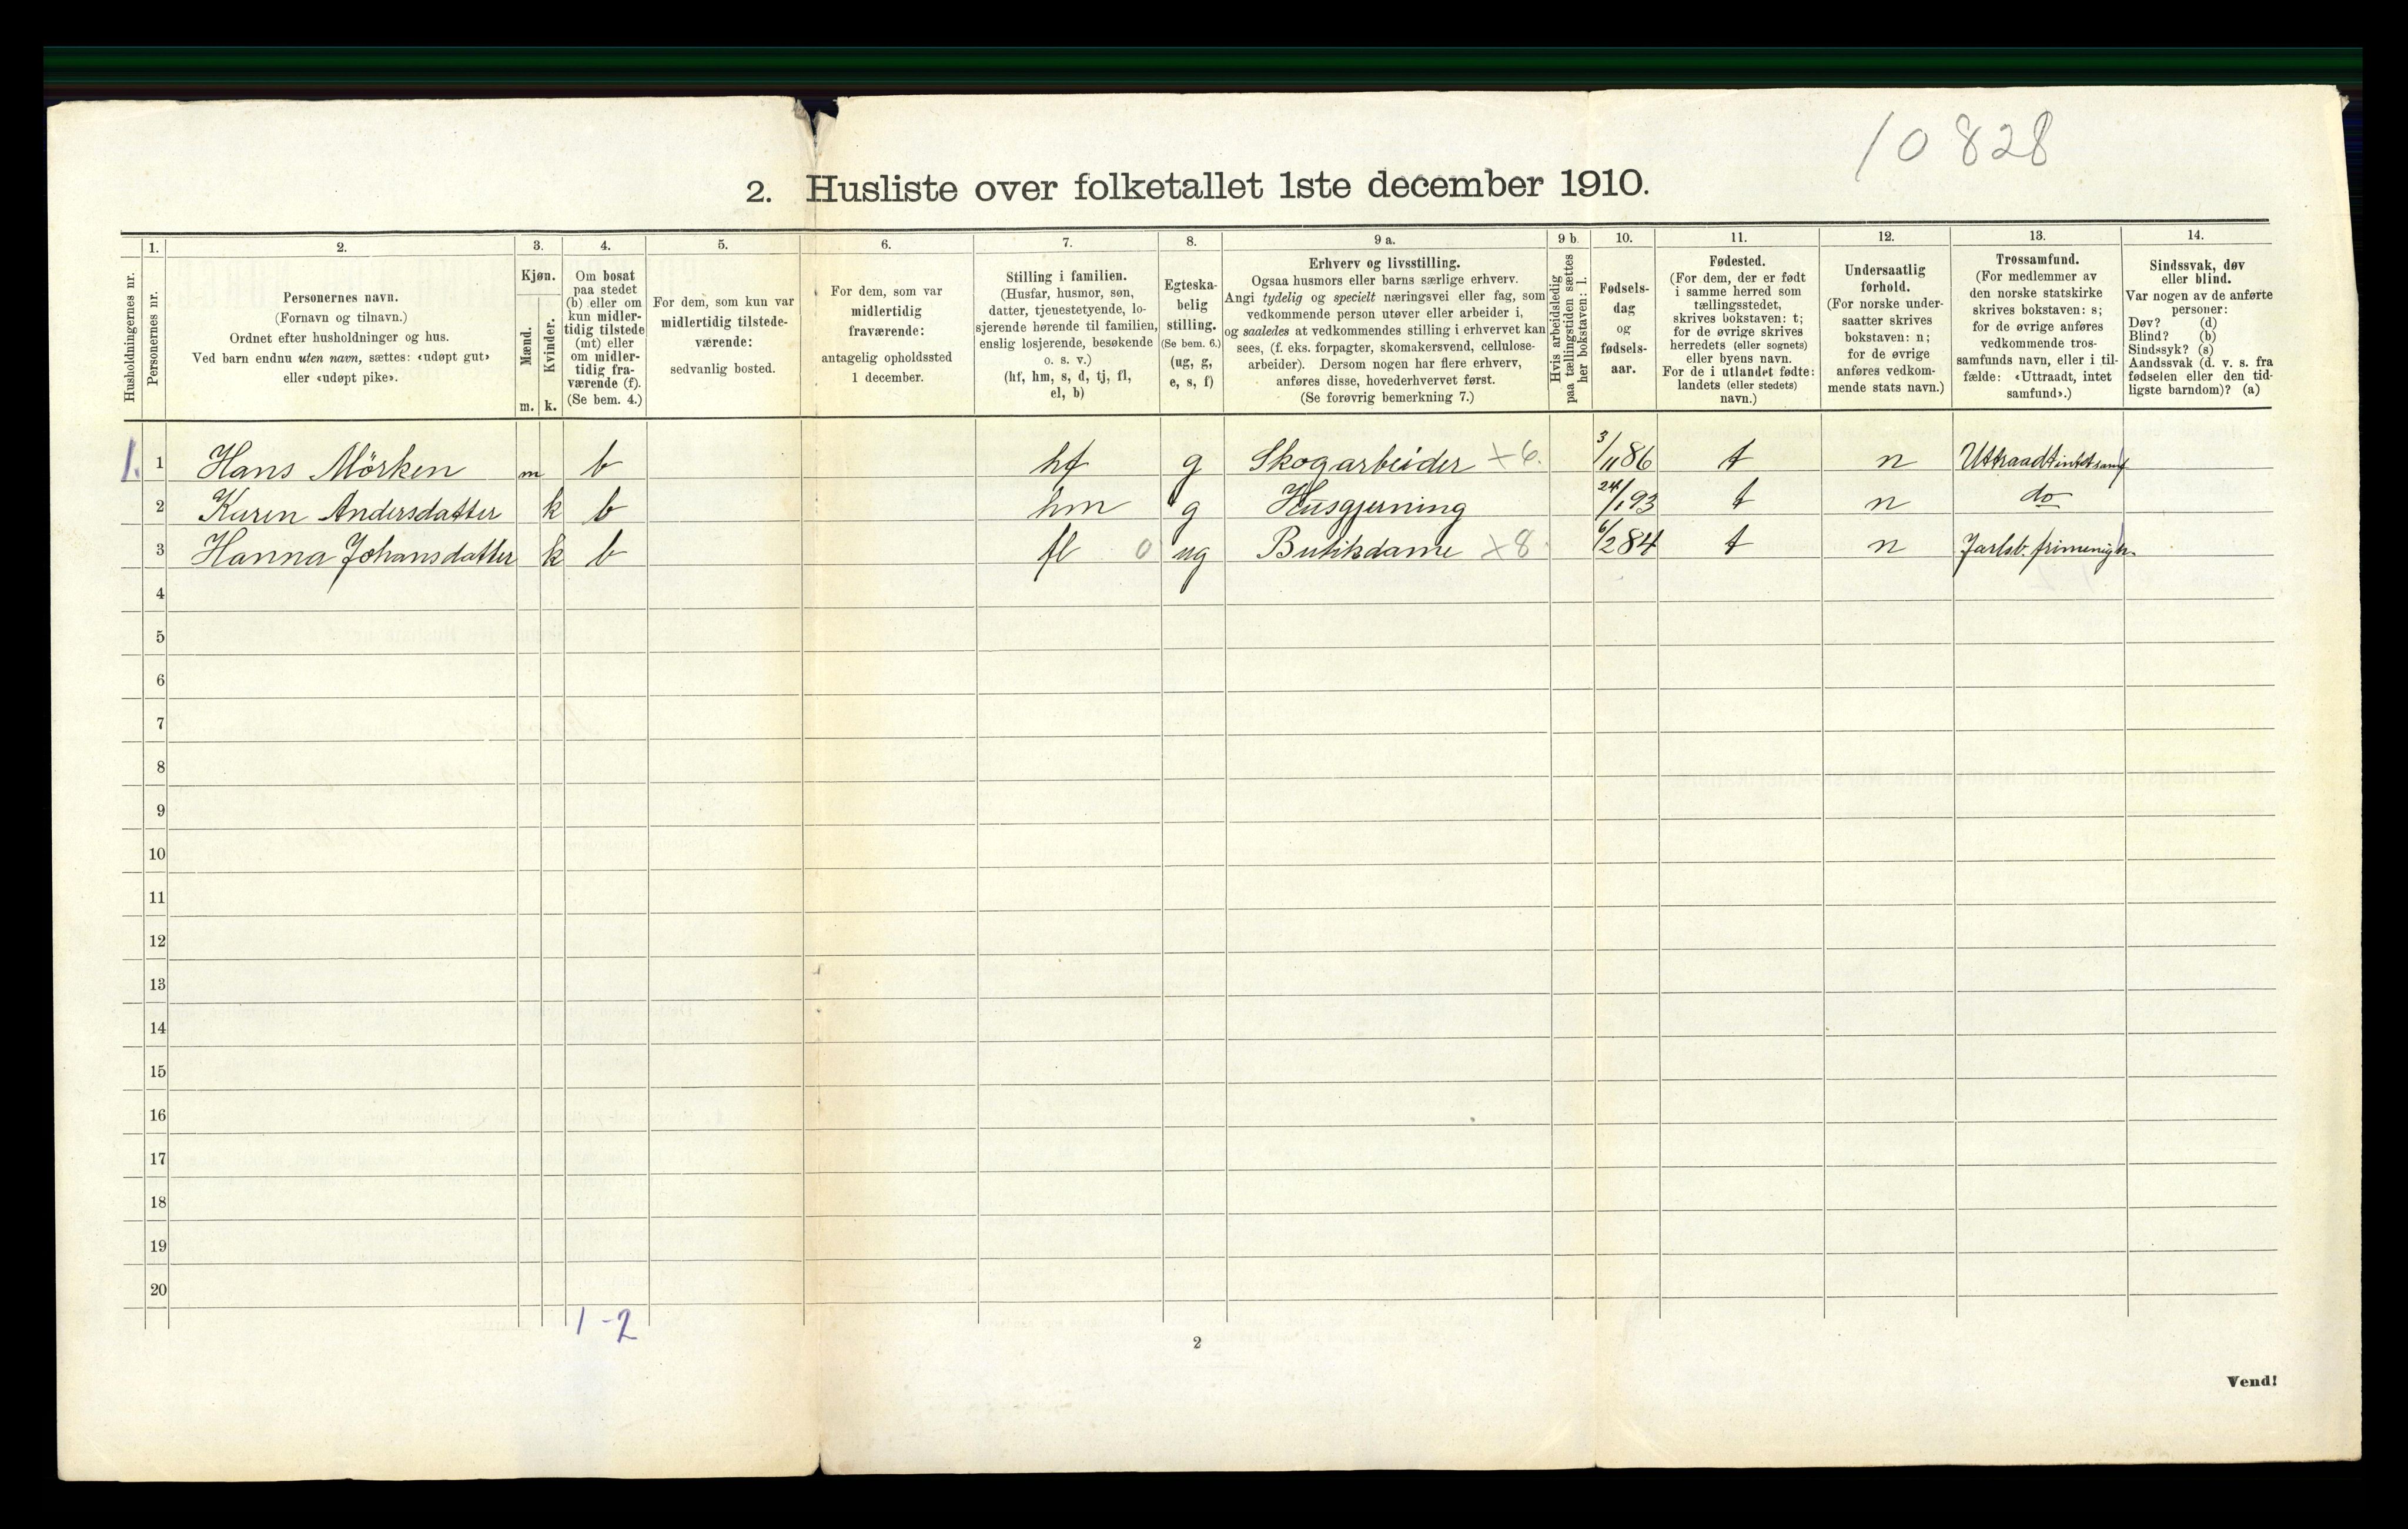 10828
2. Husliste over folketallet 1ste december 1910.
Husholdningernes nr.
1.
Personernes nr.
2.
Personernes navn.
(Fornavn og tilnavn.)
Ordnet efter husholdninger og hus.
Ved barn endnu uten navn, sættes: «udøpt gut»
eller «udøpt pike».
3.
Kjøn.
Mænd.
Kvinder.
m. k.
4.
Om bosat
paa stedet
(b) eller om
kun midler-
tidig tilstede
(mt) eller
om midler-
tidig fra-
værende (f).
(Se bem. 4.)
5.
For dem, som kun var
midlertidig tilstede-
værende:
sedvanlig bosted.
6.
For dem, som var
midlertidig
fraværende:
antagelig opholdssted
1 december.
7.
Stilling i familien.
(Husfar, husmor, søn,
datter, tjenestetyende, lo-
sjerende hørende til familien,
enslig losjerende, besøkende
o. s. v.)
(hf, hm, s, d, tj, fl,
el, b)
8.
Egteska-
belig
stilling.
(Se bem. 6.)
(ug, g,
e, s, f)
9 a.
Erhverv og livsstilling.
Ogsaa husmors eller barns særlige erhverv.
Angi tydelig og specielt næringsvei eller fag, som
vedkommende person utøver eller arbeider i,
og saaledes at vedkommendes stilling i erhvervet kan
sees, (f. eks. forpagter, skomakersvend, cellulose-
arbeider). Dersom nogen har flere erhverv,
anføres disse, hovederhvervet først.
(Se forøvrig bemerkning 7.)
9 b.
Hvis arbeidsledig
paa tællingstiden sættes
her bokstaven: l.
10.
Fødsels-
dag
og
fødsels-
aar.
11.
Fødested.
(For dem, der er født
i samme herred som
tællingsstedet,
skrives bokstaven: t;
for de øvrige skrives
herredets (eller sognets)
eller byens navn.
For de i utlandet fødte:
landets (eller stedets)
navn.)
12.
Undersaatlig
forhold.
(For norske under-
saatter skrives
bokstaven: n;
for de øvrige
anføres vedkom-
mende stats navn.)
13.
Trossamfund.
(For medlemmer av
den norske statskirke
skrives bokstaven: s;
for de øvrige anføres
vedkommende tros-
samfunds navn, eller i til-
fælde: «Uttraadt, intet
samfund».)
14.
Sindssvak, døv
eller blind.
Var nogen av de anførte
personer:
Døv? (d)
Blind? (b)
Sindssyk? (s)
Aandssvak (d. v. s. fra
fødselen eller den tid-
ligste barndom)? (a)
1. 1 Hans Mörken m b hf g Skogarbeider ×6. 3/11 86 t n Uttraadt intet samf
2 Karen Andersdatter k b hm g Husgjerning 24/1 93 t n do
3 Hanna Johansdatter k b fl 0 ug Butikdame ×8 6/2 84 t n Jarlsb. frimenigh.
4
5
6
7
8
9
10
11
12
13
14
15
16
17
18
19
20
1-2
2
Vend!